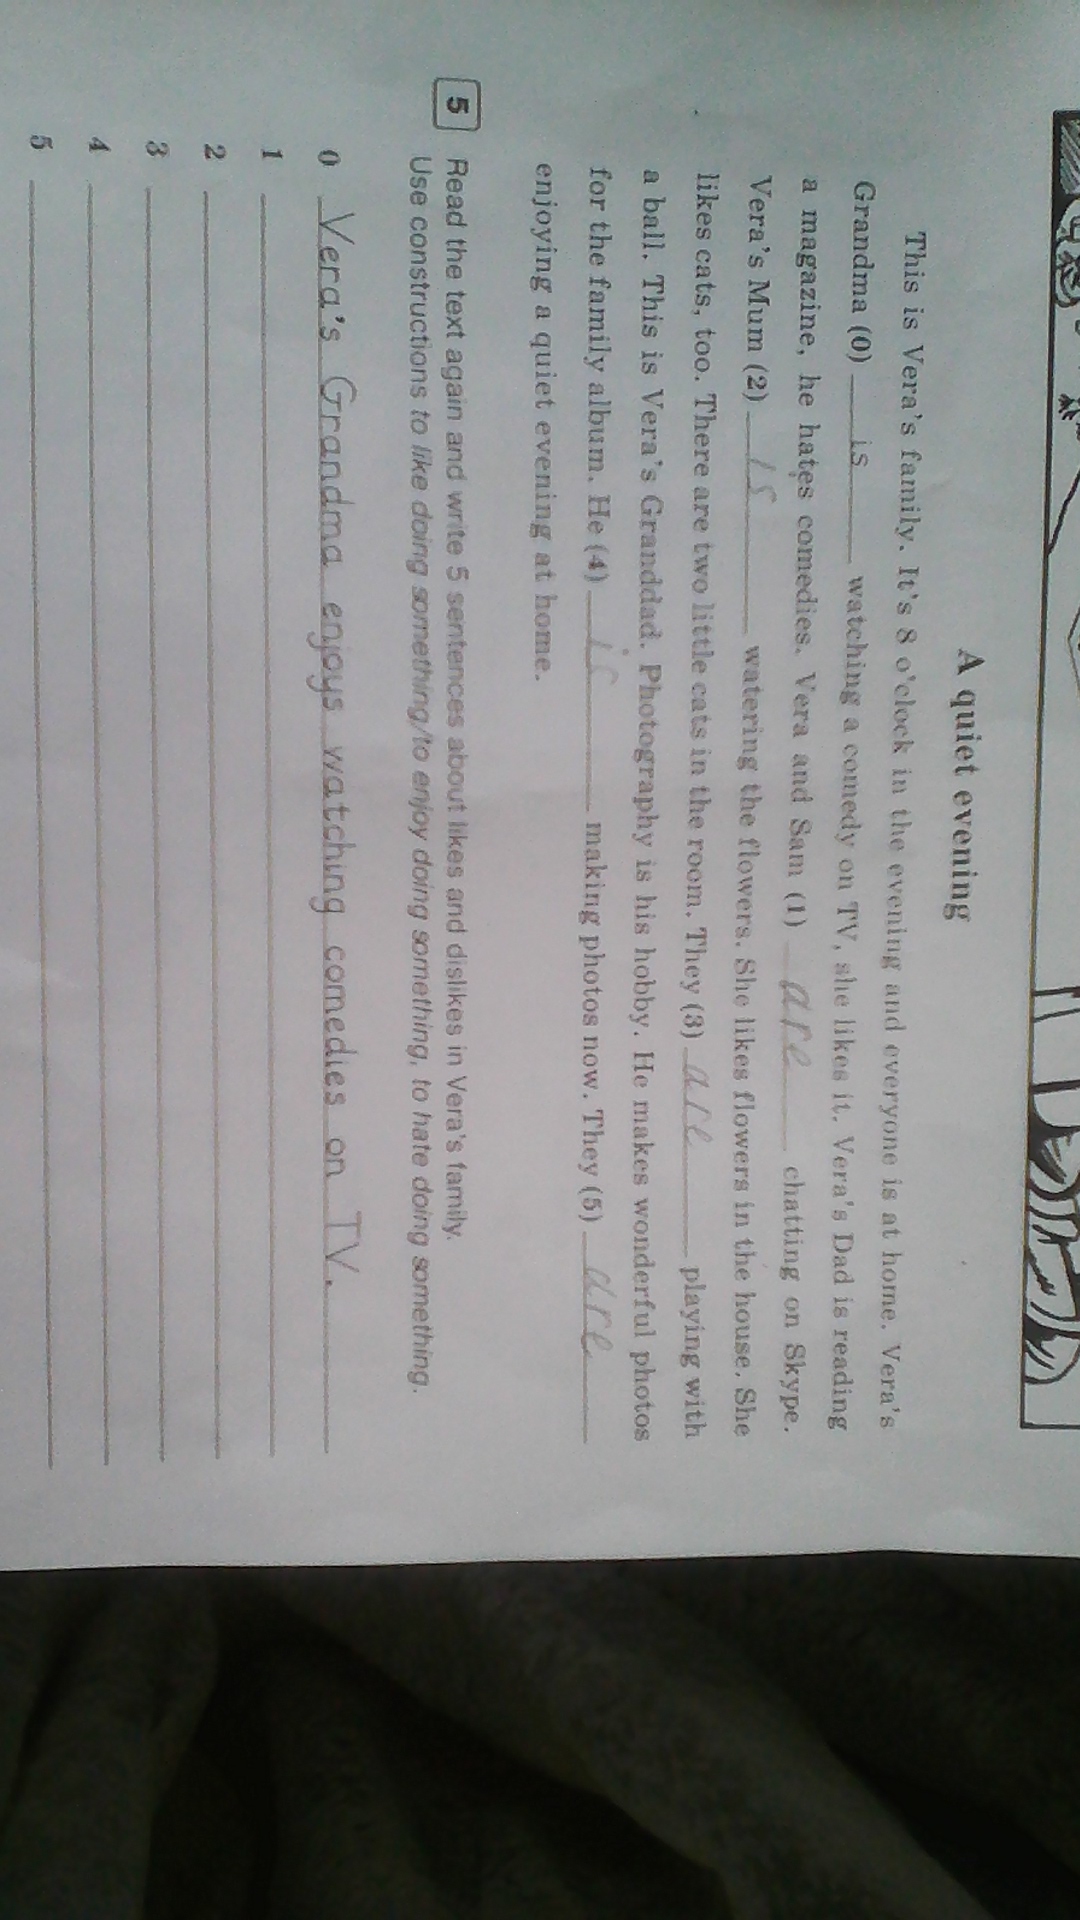 A quiet evening
This is Vera's family. It's 8 o'clock in the evening and everyone is at home. Vera's
Grandma (0) is watching a comedy on TV, she likes it. Vera's Dad is reading
a magazine, he hates comedies. Vera and Sam (1) are chatting on Skype.
Vera's Mum (2) is watering the flowers. She likes flowers in the house. She
likes cats, too. There are two little cats in the room. They (3) are playing with
a ball. This is Vera's Granddad. Photography is his hobby. He makes wonderful photos
for the family album. He (4) is making photos now. They (5) are
enjoying a quiet evening at home.
5 Read the text again and write 5 sentences about likes and dislikes in Vera's family.
Use constructions to like doing something/to enjoy doing something, to hate doing something.
0 Vera's Grandma enjoys watching comedies on TV.
1
2
3
4
5